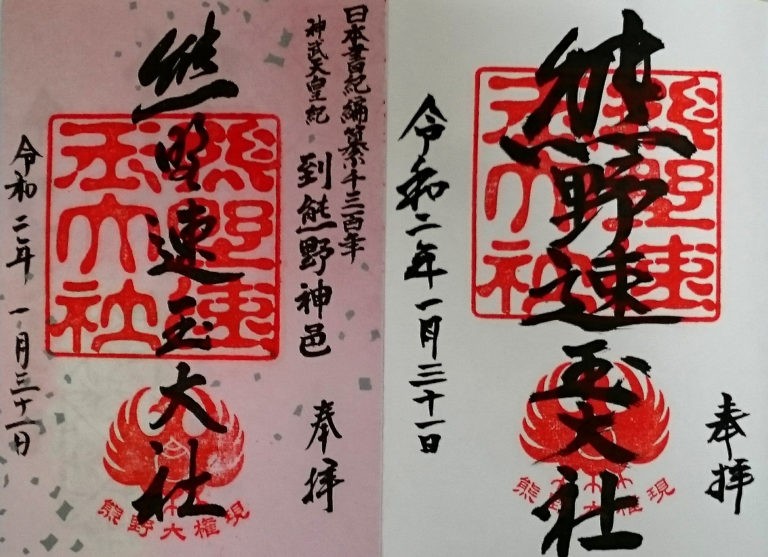 日本書紀編纂千三百年
神武天皇紀
到熊野神邑
奉拝
熊野速玉大社
熊野速玉大社
熊野大権現
令和二年 一月三十一日
奉拝
熊野速玉大社
熊野速玉大社
熊野大権現
令和二年一月三十一日